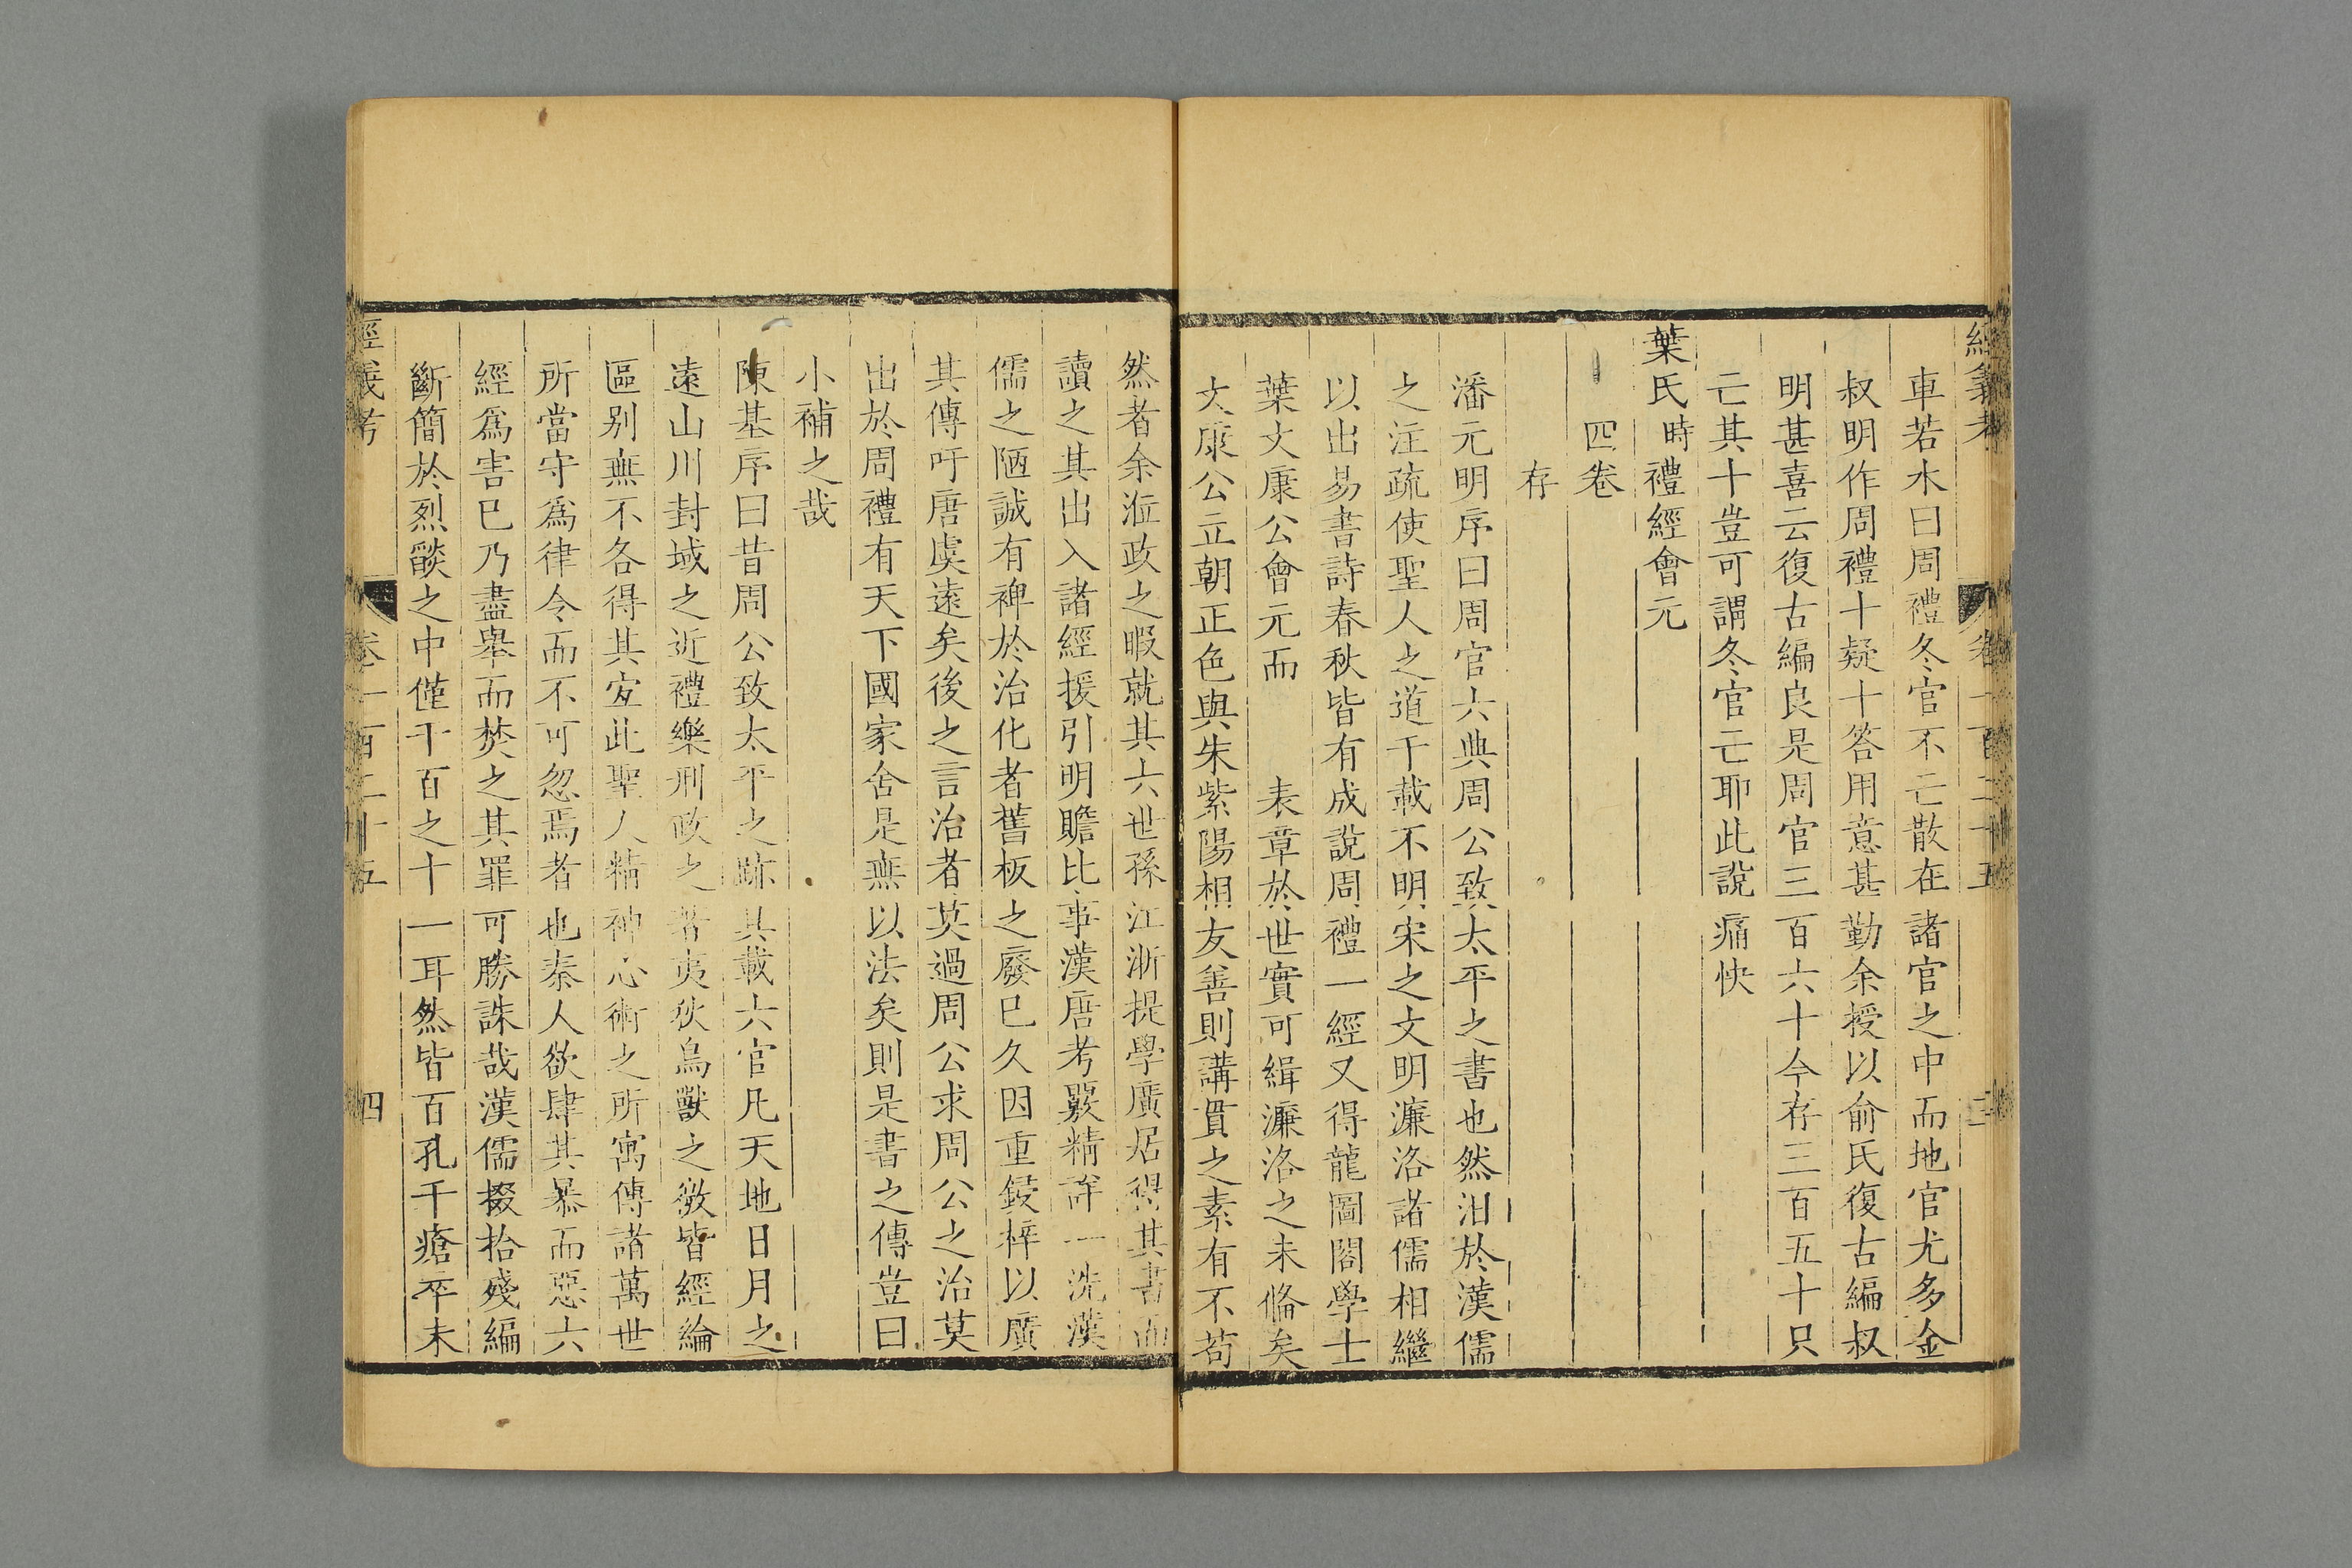 經義考
卷一百二十五
三
車若水曰周禮冬官不亡散在諸官之中而地官尤多金
叔明作周禮十疑十答用意甚勤余授以俞氏復古編叔
明甚喜云復古編良是周官三百六十今存三百五十只
亡其十豈可謂冬官亡耶此說痛快
葉氏時禮經會元
四卷
存
潘元明序曰周官六典周公致太平之書也然汨於漢儒
之注疏使聖人之道千載不明宋之文明濂洛諸儒相繼
以出易書詩春秋皆有成說周禮一經又得龍圖閣學士
葉文康公會元而 表章於世實可緝濂洛之未俻矣
文康公立朝正色與朱紫陽相友善則講貫之素有不苟
然者余涖政之暇就其六世孫江浙提學廣居得其書而
讀之其出入諸經援引明贍比事漢唐考覈精詳一洗漢
儒之陋誠有裨於治化者舊板之廢已久因重鋟梓以廣
其傳吁唐虞遠矣後之言治者莫過周公求周公之治莫
出於周禮有天下國家舍是無以法矣則是書之傳豈曰
小補之哉
陳基序曰昔周公致太平之跡具載六官凡天地日月之
遠山川封域之近禮樂刑政之著夷狄鳥獸之微皆經綸
區别無不各得其宜此聖人精神心術之所寓傳諸萬世
所當守為律令而不可忽焉者也秦人欲肆其暴而惡六
經為害已乃盡舉而焚之其罪可勝誅哉漢儒掇拾殘編
斷簡於烈燄之中僅千百之十一耳然皆百孔千瘡卒未
經義考
卷一百二十五
四